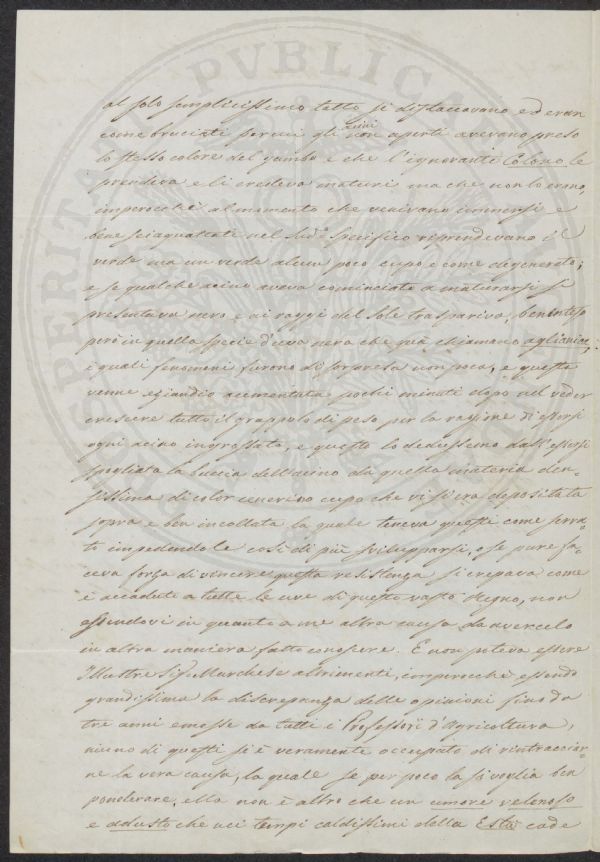 al solo semplicissimo tatto si distaccavano ed eran
come bruciati per cui gli acini non aperti avevano preso
lo stesso colore del gambo e che l'ignorante Colono le
prendeva e li credeva maturi ma che non lo erano,
imperocchè al momento che venivano immersi e
bene sciaquattate nel sud.o specifico riprendevano il
verde ma un verde alcun poco cupo e come degenerato;
e se qualche acino aveva cominciato a maturarsi si
presentava nero e ai raggi del Sole traspariva, beninteso
però in quella specie d'uva nera che quà chiamano aglianica;
i quali fenomeni furono di sorpresa non poca, e questa
venne eziandio aumentata pochi minuti dopo nel veder
crescere tutto il grappolo di peso per la ragione di essersi
ogni acino ingrossato, e questo lo dedussemo dall'essersi
spogliata la buccia dell'acino da questa materia den-
sissima di color cenerino cupo che vi si era depositata
sopra e ben incollata la quale teneva questi come serra-
to impedendole così di più svilupparsi, o se pure fa-
ceva forza di vincere questa resistenza si crepava come
è accaduto a tutte le uve di questo vasto Regno, non
essendovi in quanto a me altra causa da avercelo
in altra maniera fatto conoscere. E non poteva essere
Illustre Sig. Marchese altrimenti, imperocchè essendo
grandissima la discrepanza delle opinioni fino da
tre anni emesse da tutti i Professori d'Agricoltura,
niuno di questi si è veramente occupato di rintracciar-
ne la vera causa, la quale se per poco la si voglia ben
ponderare, ella non è altro che un umore velenoso
e adusto che nei tempi caldissimi della Està cade
PROSPERITATI PVBLICAE